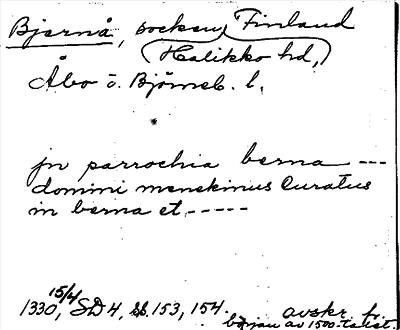 Bjernå, socken, Finland
(Halikko hd,)
Åbo o. Björneb. l.
jn parrochia berna ---
domini menekinus Curatus
in berna et -----
1330, 15/4, SD 4, ss. 153, 154. avskr. fr.
början av 1500-talet.